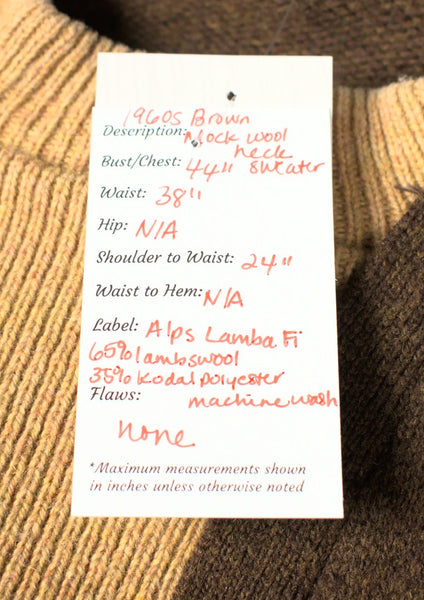 1960s Brown
Description: Mock wool
neck
Bust/Chest: 44" sweater
Waist: 38"
Hip: N/A
Shoulder to Waist: 24"
Waist to Hem: N/A
Label: Alps Lamba Fi
65% lambswool
35% Kodal polyester
Flaws: machine wash
none
*Maximum measurements shown
in inches unless otherwise noted